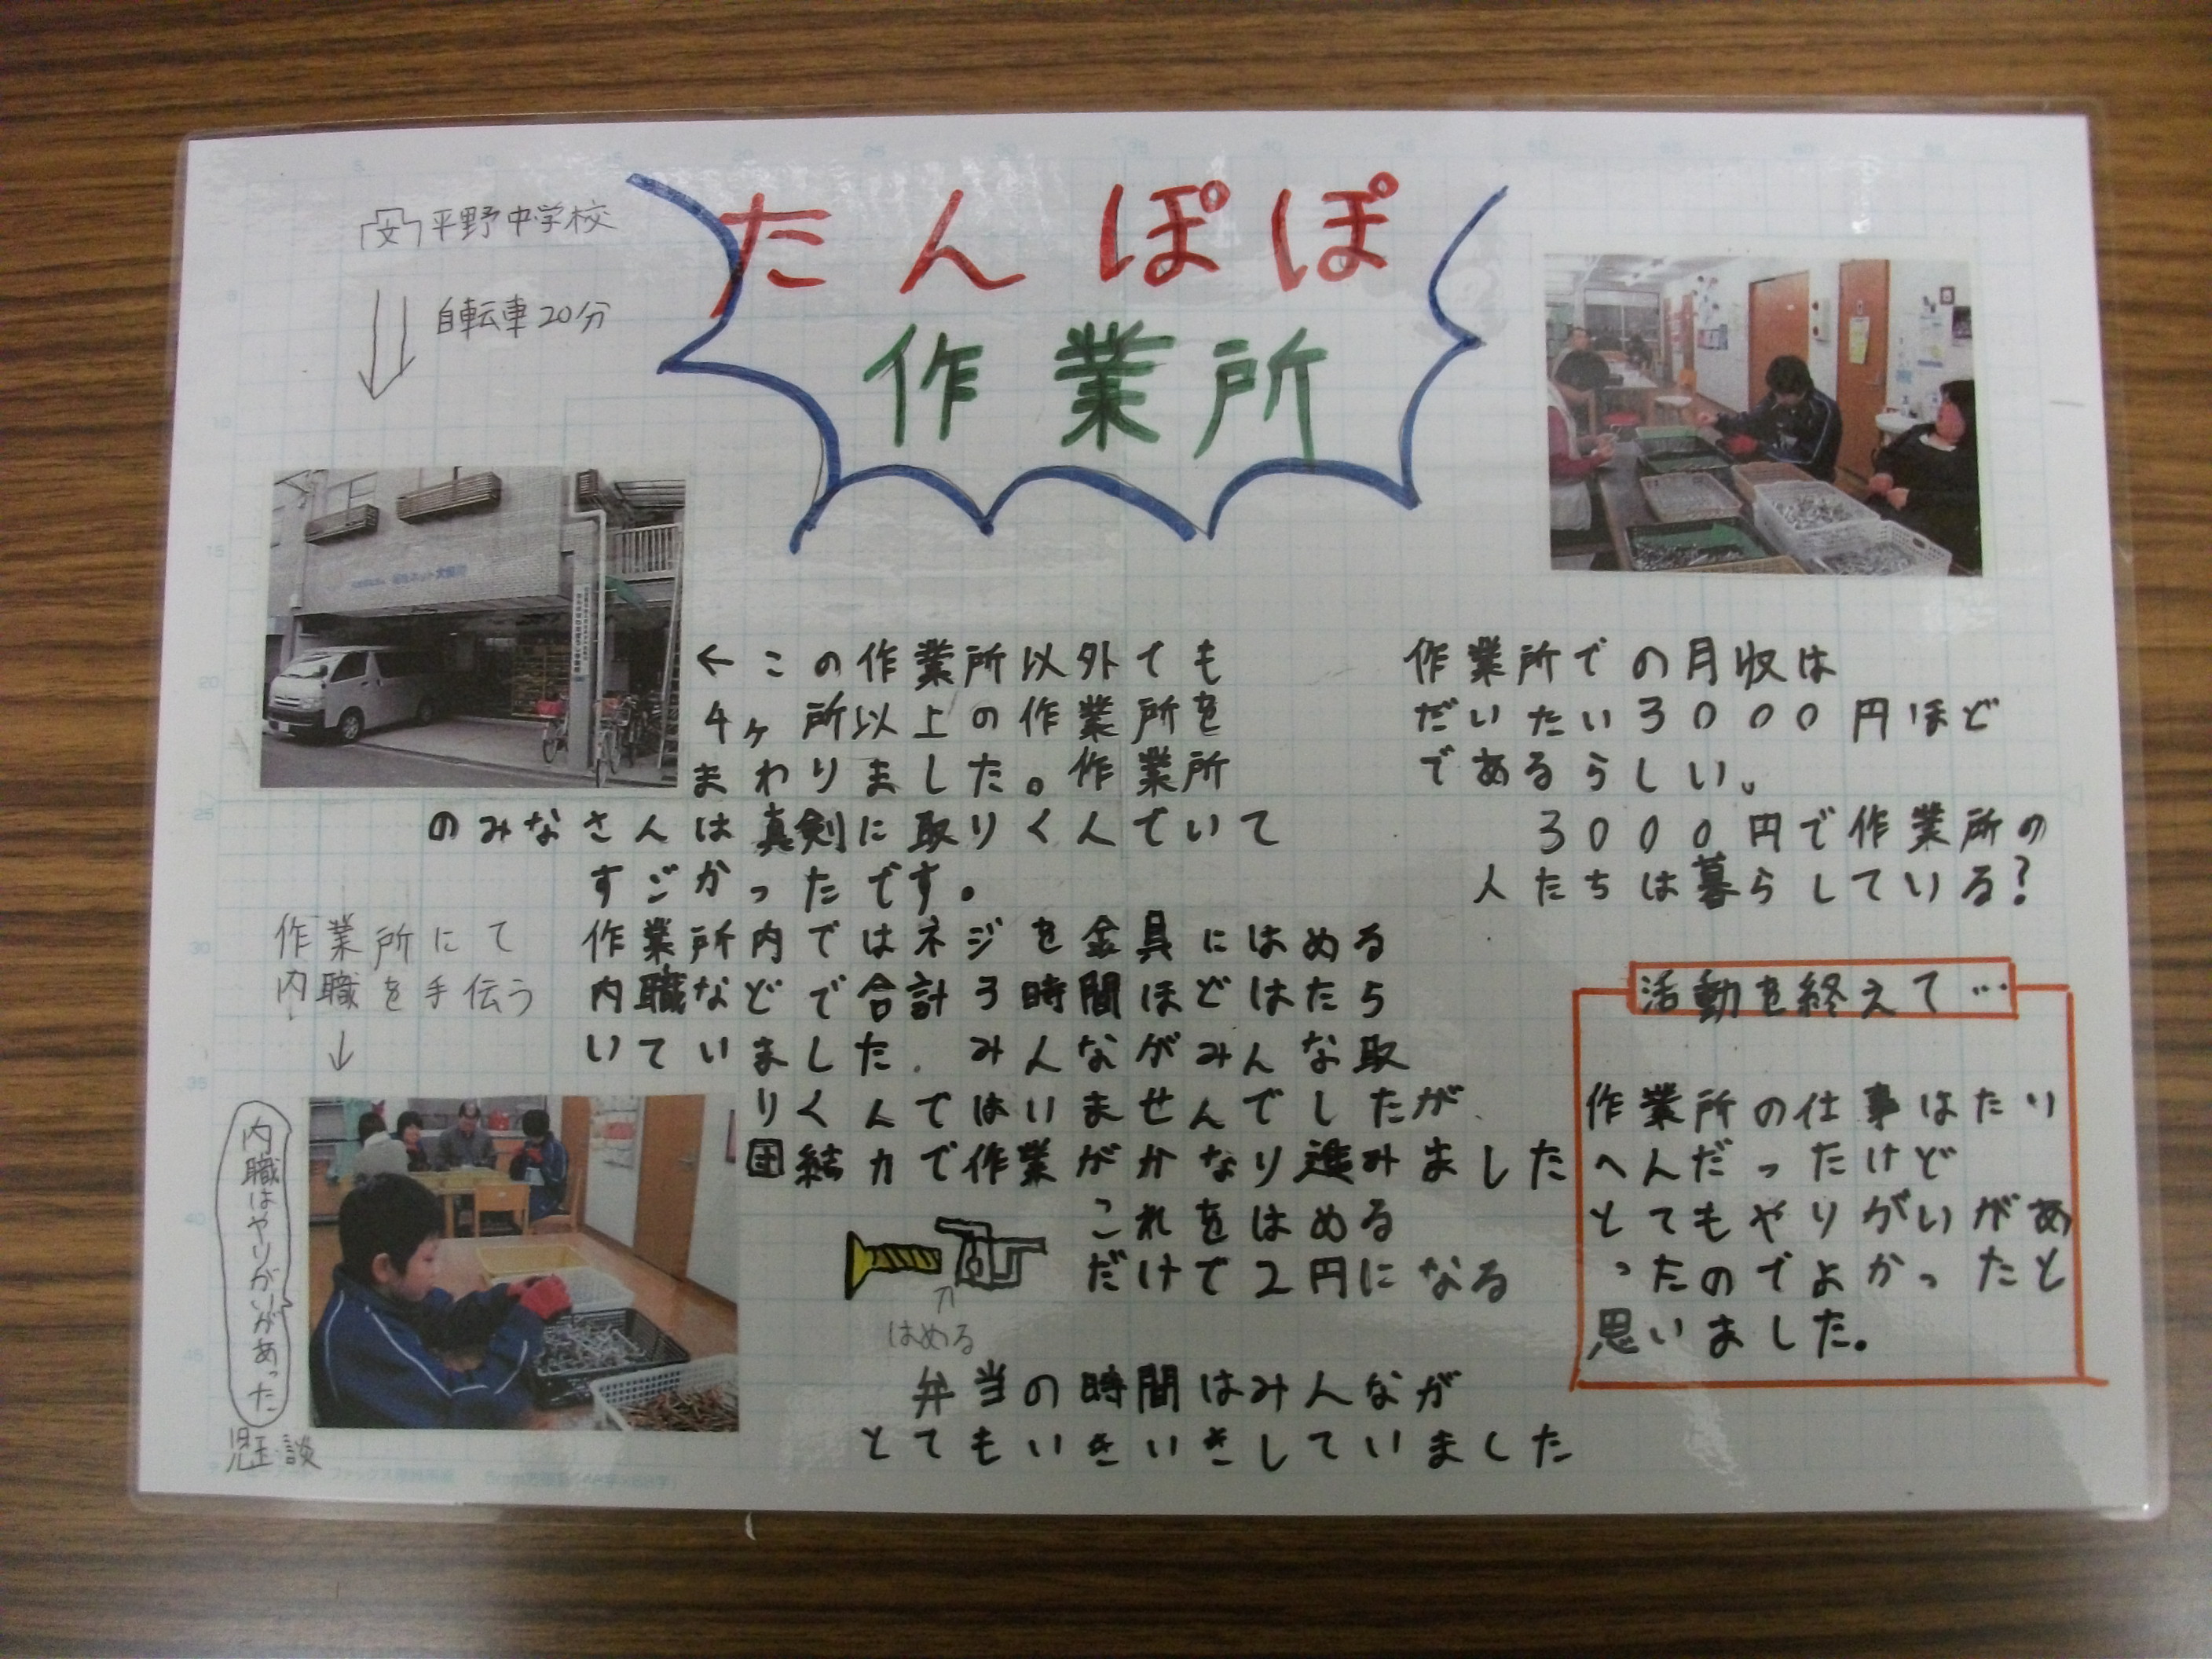 たんぽぽ
作業所
平野中学校
自転車20分
←この作業所以外ても
4ヶ所以上の作業所を
まわりました。作業所
のみなさんは真剣に取りくんていて
すごかったです。
作業所にて
内職を手伝う
↓
内職はやりがいがあった
児玉・談
作業所内ではネジを金具にはめる
内職などで合計3時間ほどはたら
いていました.みんながみんな取
りくんではいませんでしたが、
団結力で作業がかなり進みました
これをはめる
だけで2円になる
はめる
弁当の時間はみんなが
とてもいきいきしていました
作業所での月収は
だいたい3000円ほど
であるらしい。
3000円で作業所の
人たちは暮らしている?
活動を終えて…
作業所の仕事はたい
へんだったけど
とてもやりがいがあ
ったのでよかったと
思いました。